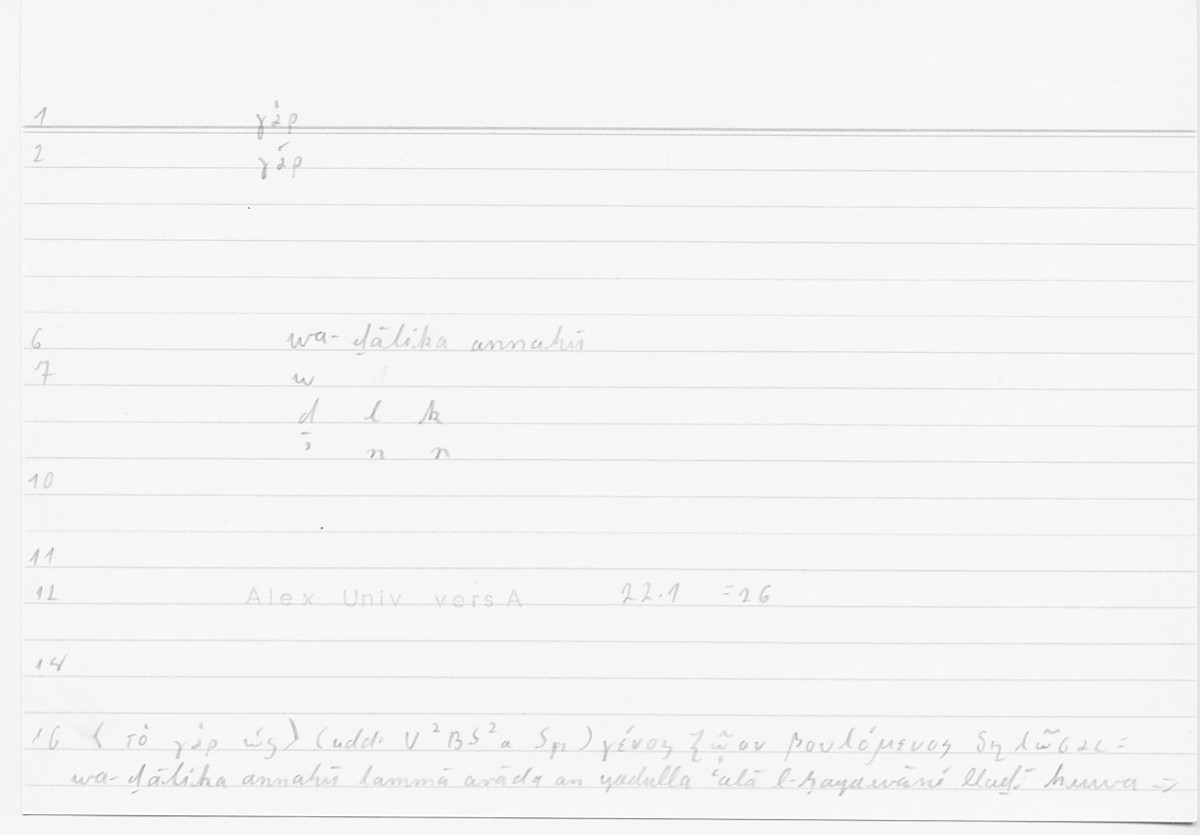 1 γὰρ
2 γάρ
6 wa-ḏālika annahū
7 w
ḏ l k
ʾ n n
10
11
12 Alex Univ vers A 22.1 =26
14
16 〈τὸ γὰρ ὡς〉 (add. V²BS²a Sp) γένος ζῷον βουλόμενος δηλῶσαι =
wa-ḏālika annahū lammā arāda an yadulla ʿalā l-ḥayawāni llaḏī huwa →